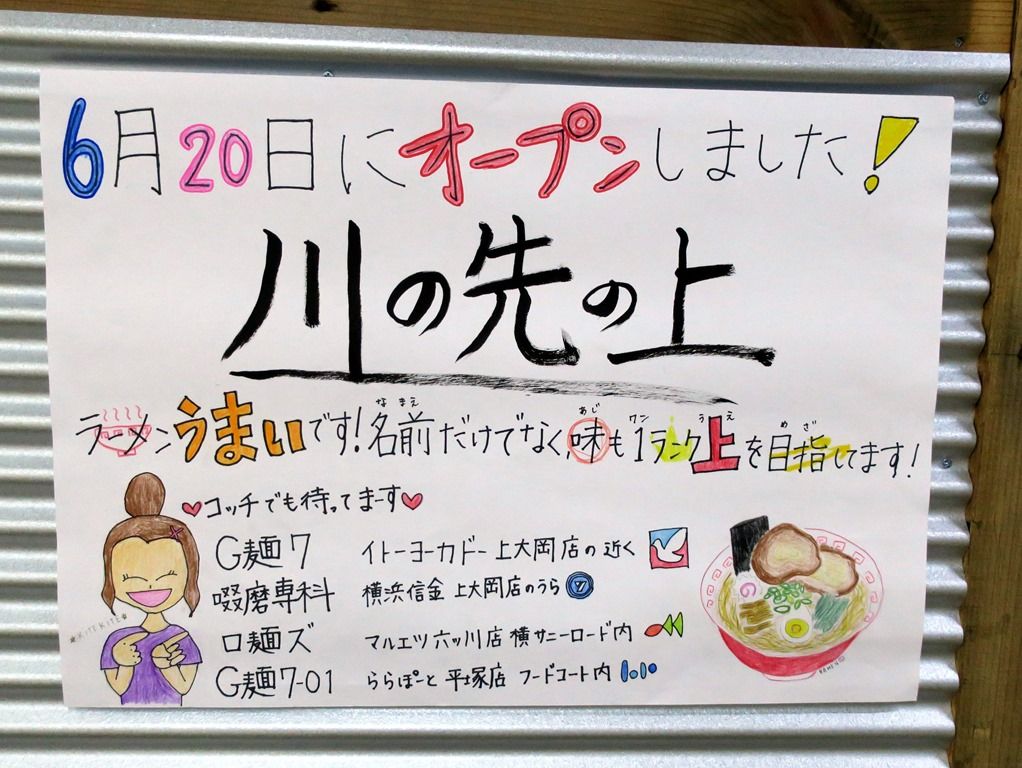 6月20日にオープンしました!
川の先の上
ラーメンうまいです!名前だけでなく、味も1ランク上を目指してます!
なまえ あじ ワン うえ めざ
♥コッチでも待ってまーす♥
G麺7 イトーヨーカドー上大岡店の近く
啜磨専科 横浜信金 上大岡店のうら
ロ麺ズ マルエツ 六ッ川店 横 サニーロード内
G麺7-01 ららぽーと 平塚店 フードコート内
★KITEKITE★
RAMEN